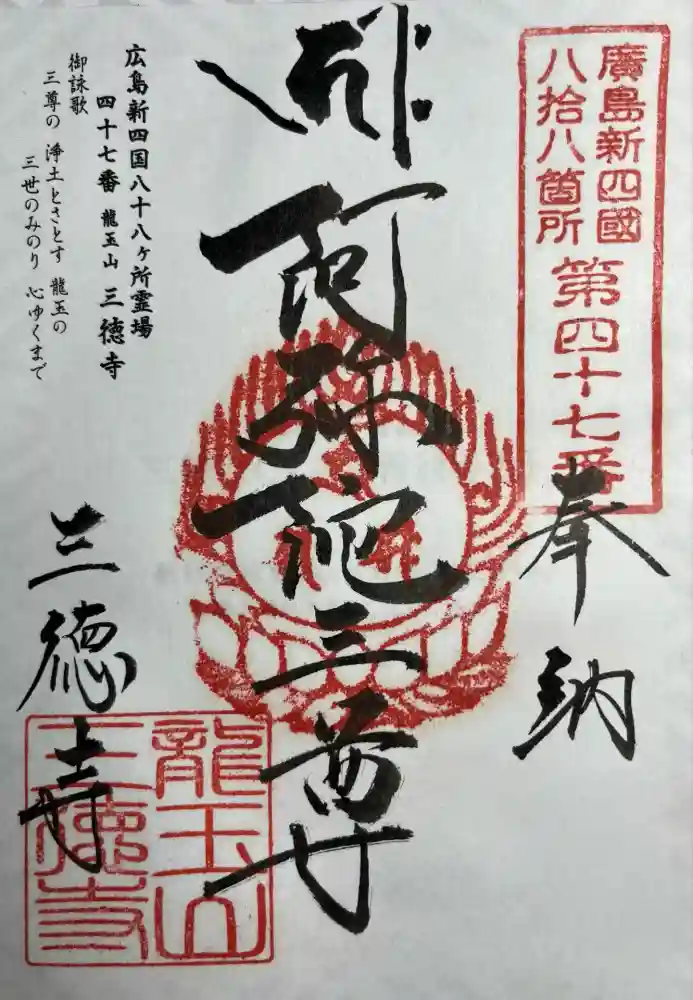 廣島新四國
八拾八箇所
第四十七番
奉納
阿弥陀三尊
三徳寺
龍玉山
三徳寺
広島新四国八十八ヶ所霊場
四十七番 龍玉山 三徳寺
御詠歌
三尊の 浄土とさとす 龍玉の
三世のみのり 心ゆくまで